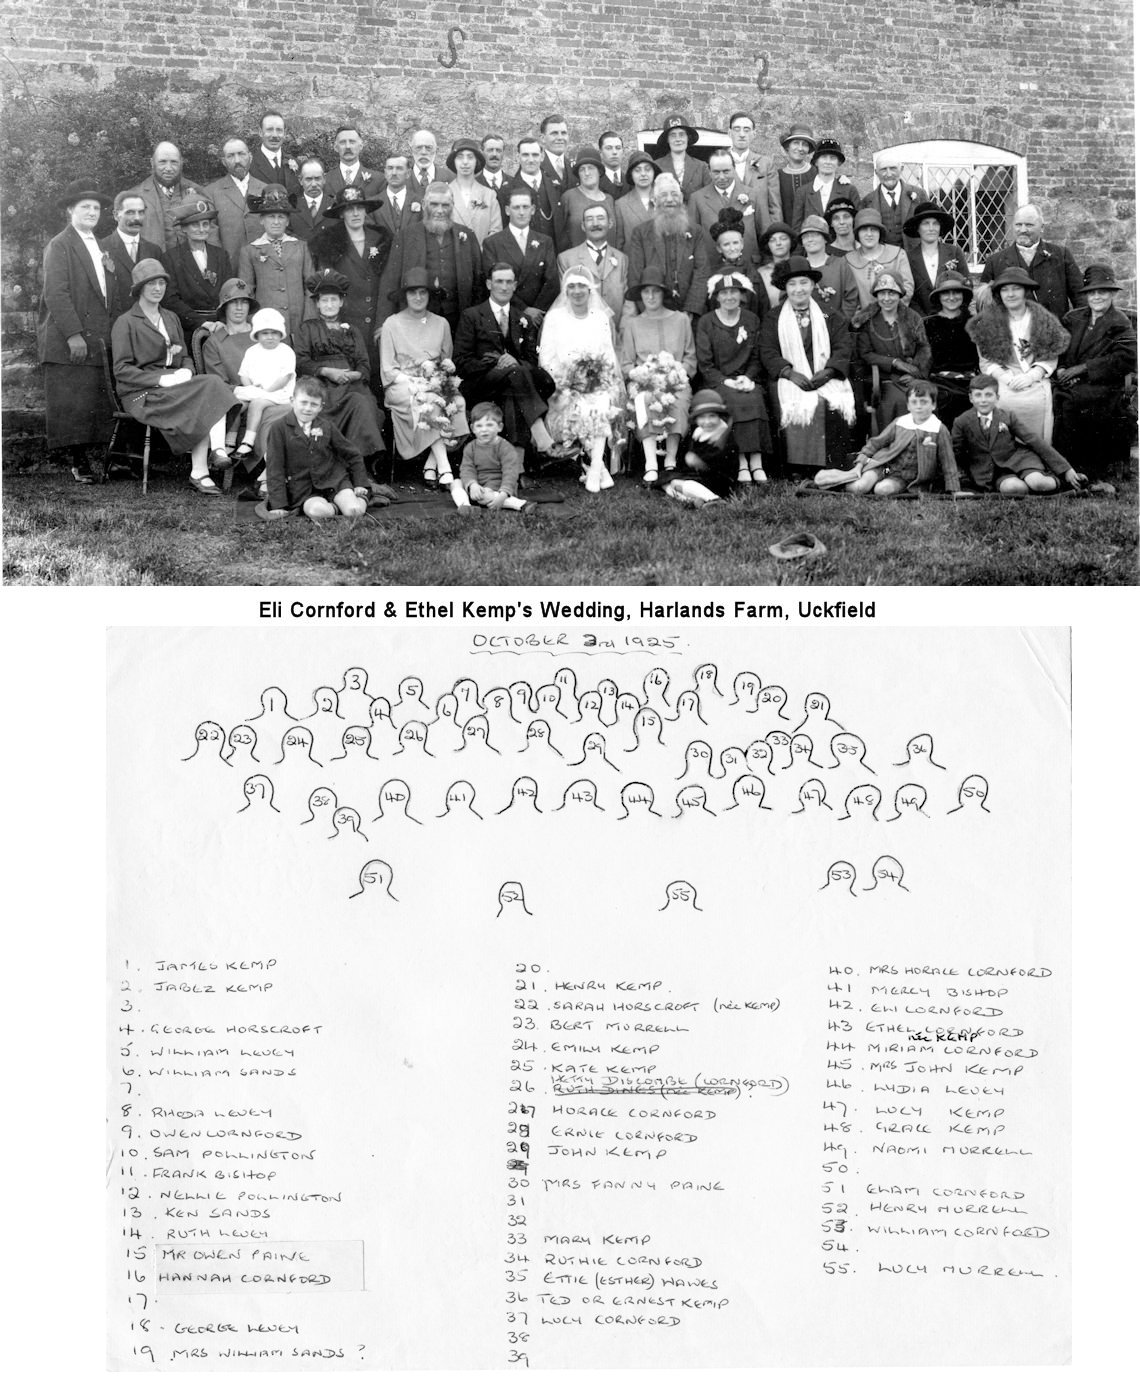 Eli Cornford & Ethel Kemp's Wedding, Harlands Farm, Uckfield
OCTOBER 3rd 1925.
1 2 3 4 5 6 7 8 9 10 11 12 13 14 15 16 17 18 19 20 21
22 23 24 25 26 27 28 29 30 31 32 33 34 35 36
37 38 39 40 41 42 43 44 45 46 47 48 49 50
51 52 55 53 54
1. JAMES KEMP
2. JABEZ KEMP
3.
4. GEORGE HORSCROFT
5. WILLIAM LEVEY
6. WILLIAM SANDS
7.
8. RHODA LEVEY
9. OWEN CORNFORD
10. SAM POLLINGTON
11. FRANK BISHOP
12. NELLIE POLLINGTON
13. KEN SANDS
14. RUTH LEVEY
15 MR OWEN PAINE
16 HANNAH CORNFORD
17.
18 - GEORGE LEVEY
19 MRS WILLIAM SANDS ?
20.
21. HENRY KEMP.
22. SARAH HORSCROFT (née KEMP)
23. BERT MURRELL
24. EMILY KEMP
25. KATE KEMP
HETTY DISCOMBE (CORNFORD)
26. RUTH DINES (née KEMP) ?
27 HORACE CORNFORD
28 ERNIE CORNFORD
29 JOHN KEMP
30 MRS FANNY PAINE
31
32
33 MARY KEMP
34 RUTHIE CORNFORD
35 ETTIE (ESTHER) HAWES
36 TED OR ERNEST KEMP
37 LUCY CORNFORD
38
39
40. MRS HORACE CORNFORD
41 MERCY BISHOP
42. ELI CORNFORD
43 ETHEL CORNFORD
née KEMP
44 MIRIAM CORNFORD
45. MRS JOHN KEMP
46. LYDIA LEVEY
47. LUCY KEMP
48. GRACE KEMP
49. NAOMI MURRELL
50.
51 ELAM CORNFORD
52. HENRY MURRELL
53. WILLIAM CORNFORD
54.
55. LUCY MURRELL.